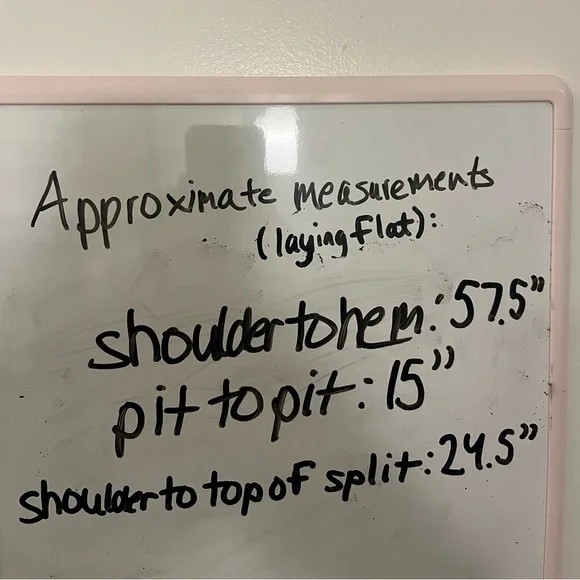 Approximate measurements
(laying flat):
shoulder to hem: 57.5"
pit to pit: 15"
shoulder to top of split: 24.5"